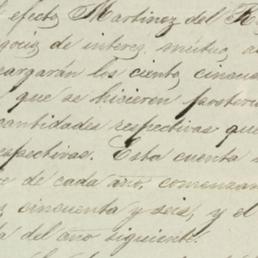 l efecto Martinez del R
gocios de interes mutuo, a
cargarán los ciento cincue
que se hicieron posterio
cantidades respectivas que
espectivas. Esta cuenta s
e de cada año, comenzan
cincuenta y seis, y el
a del año siguiente.